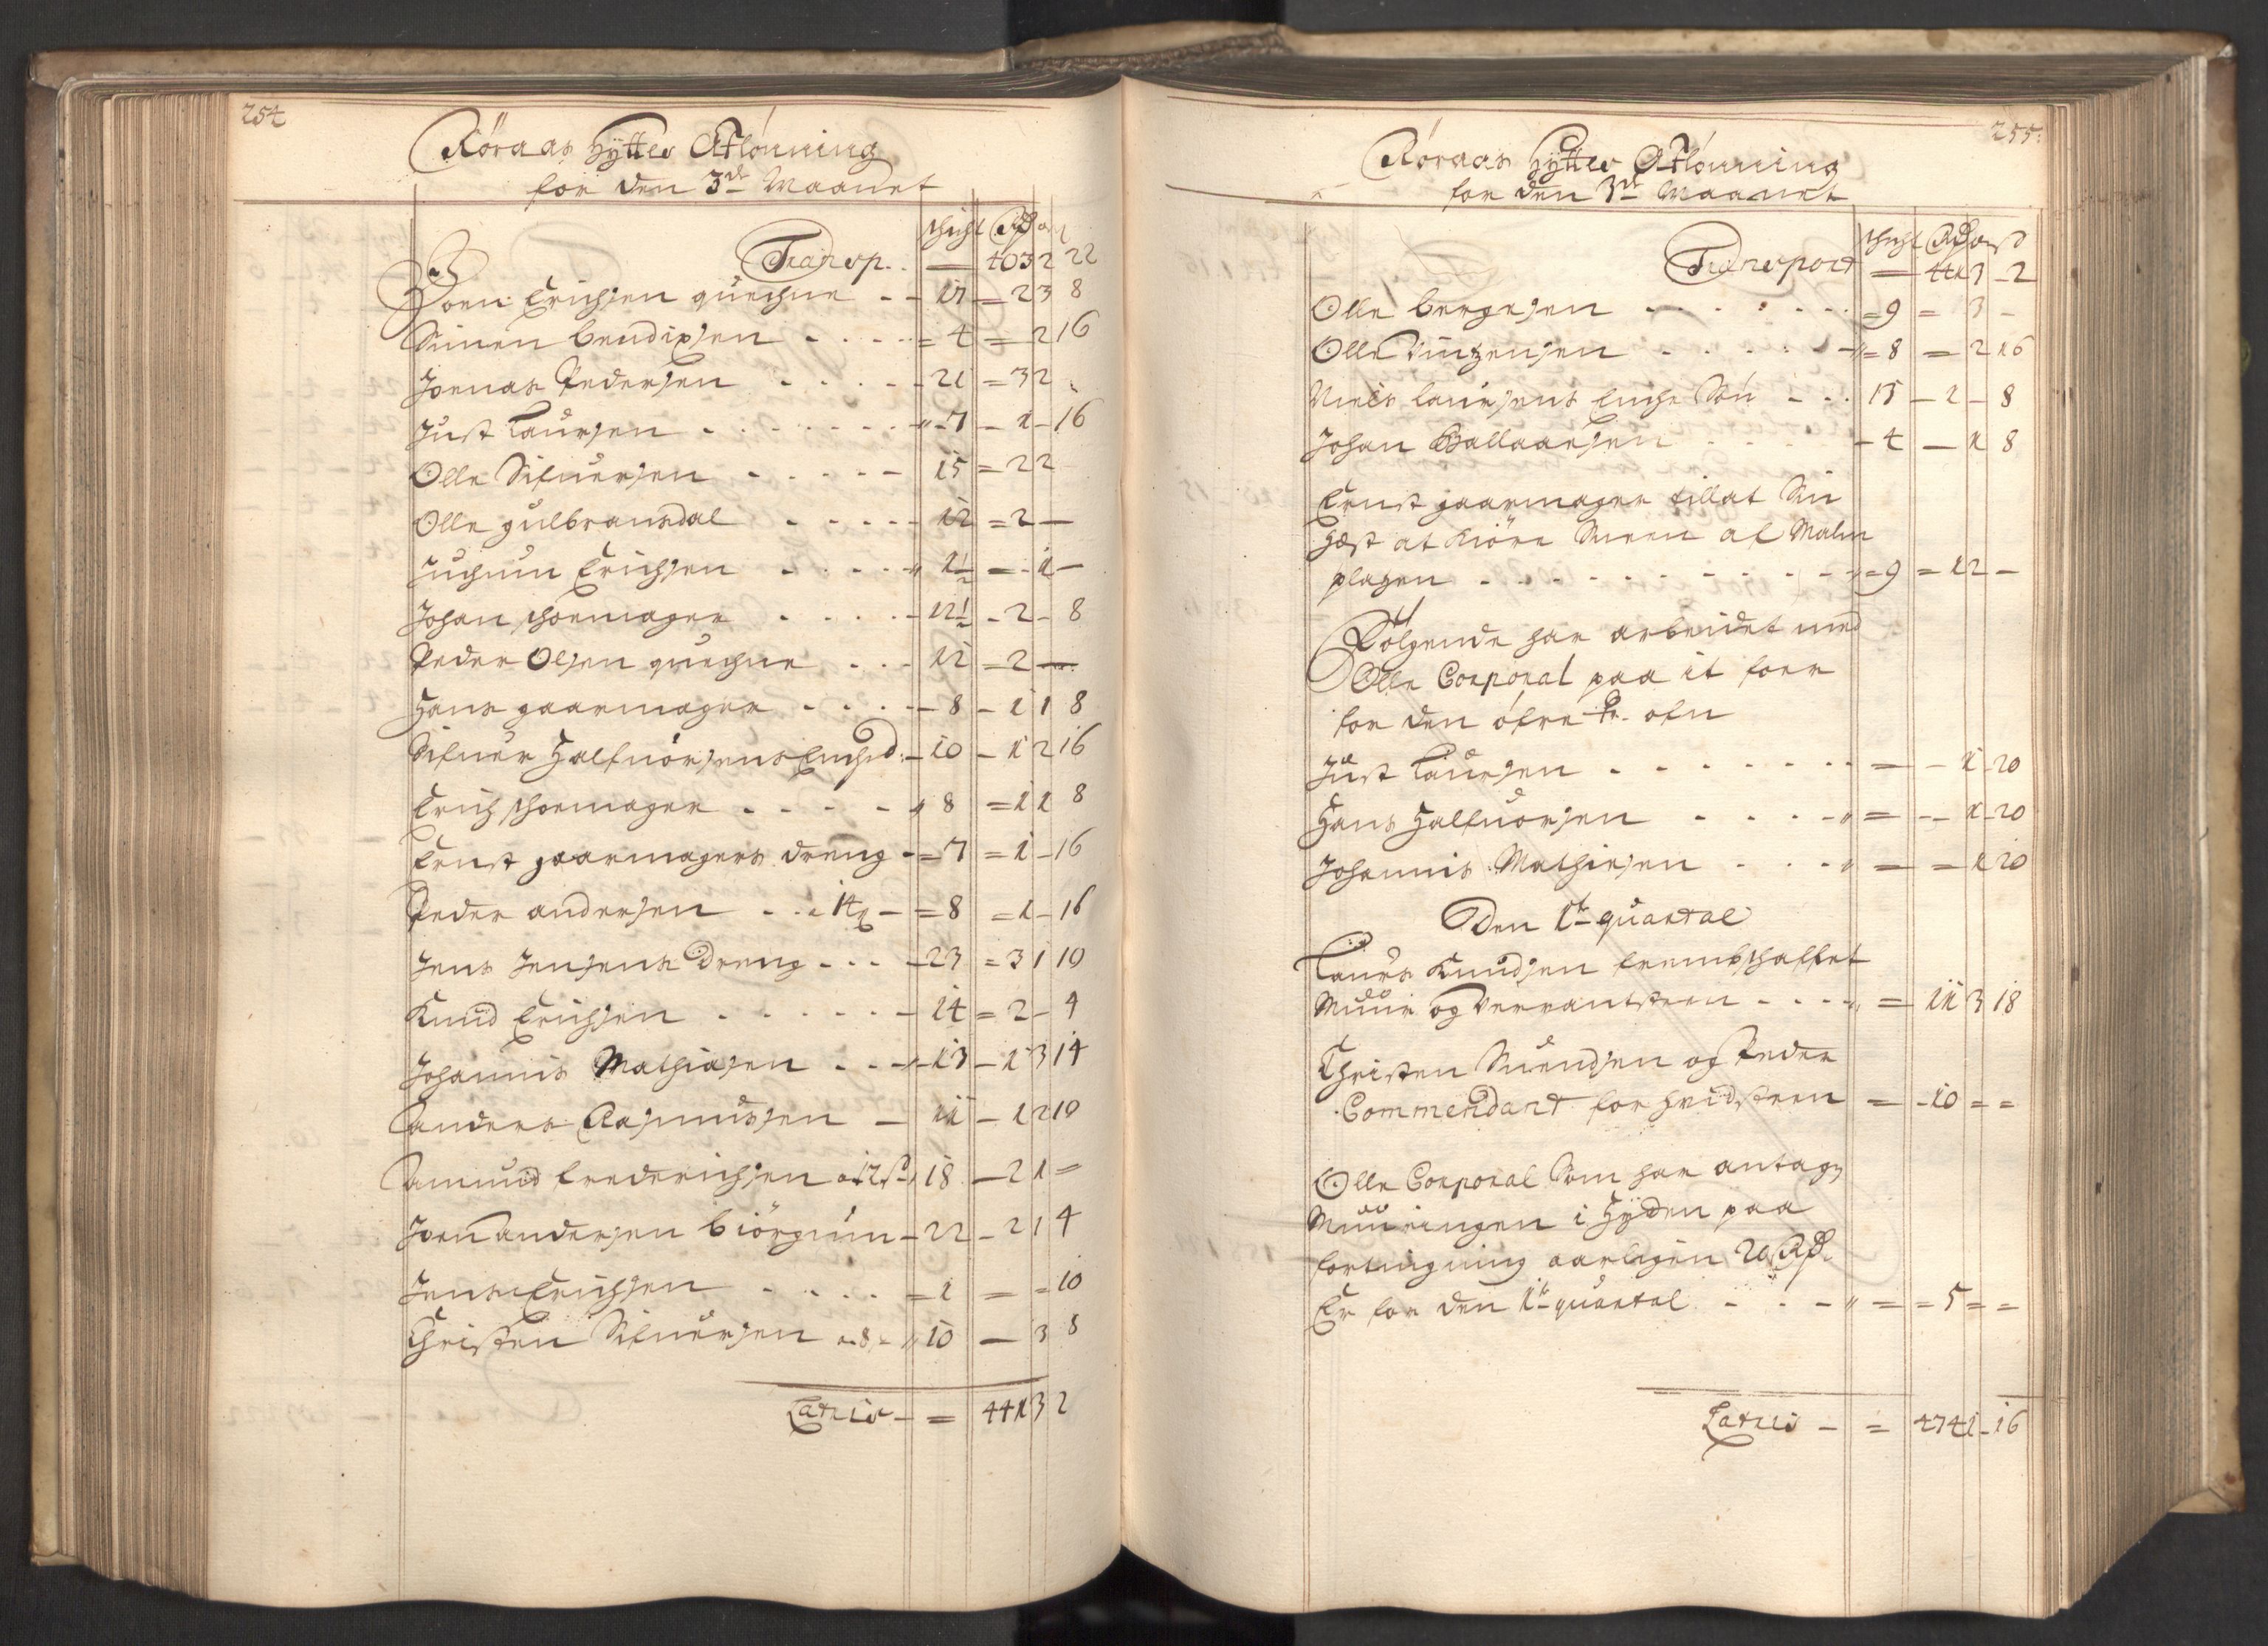 254
Röraas Hÿtter Aflönning
for den 3de Maanet
schicht Rd ort
Transp. — 403 2 22
Joen Erichsen quechne - - 17 = 2 3 8
Simen bendixsen - - - - = 4 = 2 16
Jonas Pedersen - - - - 21 = 3 2
Just Laursen - - - - - - 7 - 1 - 16
Olle Sifuersen - - - - - 15 = 2 2
Olle gulbransdal - - - - - 12 = 2 —
Juchum Erichsen - - - - 1½ = - 1 —
Johan schoemager - - - - - 12½ - 2 - 8
Peder Olsen quechne - - - 12 = 2 —
Hans gaarmager - - - - 8 - 1 1 8
Sifuer Halfuorsens - 10 - 1 2 16
Erich schoemager - - - - 8 = 1 1 8
Ernst gaarmagers dreng - = 7 = 1 - 16
Peder andersen - - = 8 = 1 - 16
Jens Jensens Dreng - - - 23 = 3 1 10
Knud Erichsen - - - - - - 14 = 2 - 4
Johannis Mathiasen - - - 13 - 1 3 14
anders Rasmussen - 11 - 1 2 10
amund frederichsen a 12 s - 18 - 2 1 =
Joen andersen biörgum - 22 - 2 1 4
Jens Erichsen - - - - = 1 = = 10
Christen Sifuersen a 8 - 10 — 3 8
Latris - = 441 3 2
255
Röraas Hÿtter Aflönning
for den 3de Maanet
schicht Rd ort s
Transport — 441 3 - 2
Olle bergesen - - - - - - = 9 = 3 -
Olle Vintzensen - - - - - = 8 = 2 16
Niels laursens Enche Sön - - - 15 - 2 - 8
Johan Hallaarsen - - - - 4 — 1 8
Ernst gaarmager tillat Sin
Hest at kiöre Steen af Malm
platzen - - - - - - - - - = 9 = 1 2 -
Fölgende har arbeidet med
Olle Corporal paa it foer
for den öfre ofn
Just Laursen - - - - - - - = - 1 - 20
Hans Halfuorsen - - - - = - - 1 - 20
Johannis Mathiesen - - - = = 1 20
Den 1te quartal
Laurs Knudsen fremschaffet
Muur og Verrantsteen - - - - = 11 3 18
Christen Suendsen og Peder
Commendant for hvidsteen = - 10 = =
Olle Corporal Som har antagen
Muuringen i Hÿden paa
fortingning aarligen 20 Rd.
Er for den 1te quartal - - - = = 5 = =
Latris - = 474 1 - 16